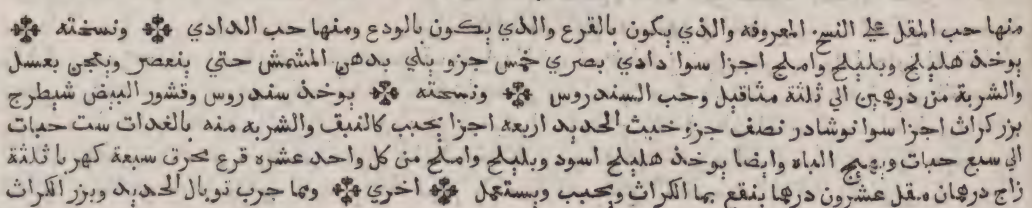 منها حب المقل علي النسخ المعروفة والذي يكون بالقرع والذي يكون بالودع ومنها حب الدادي ونسخته
يوخذ هليلج وبليلج واملج اجزا سوا دادي بصري خمس جزو يبلي بدهن المشمش حتي ينعصر ويعجن بعسل
والشربة من درهمين الي ثلثة مثاقيل وحب السندروس ونسخته يوخذ سندروس وقشور البيض شيطرج
بزر كراث اجزا سوا نوشادر نصف جزء خبث الحديد اربعه اجزا يحبب كالنبق والشربه منه بالغدات ست حبات
الي سبع حبات ويهيج الباه وايضا يوخذ هليلج اسود وبليلج واملج من كل واحد عشره قرع محرق سبعة كهربا ثلثة
زاج درهمان مقل عشرون درهما ينقع بما الكراث ويحبب ويستعمل اخري ومما جرب توبال الحديد وبزر الكراث